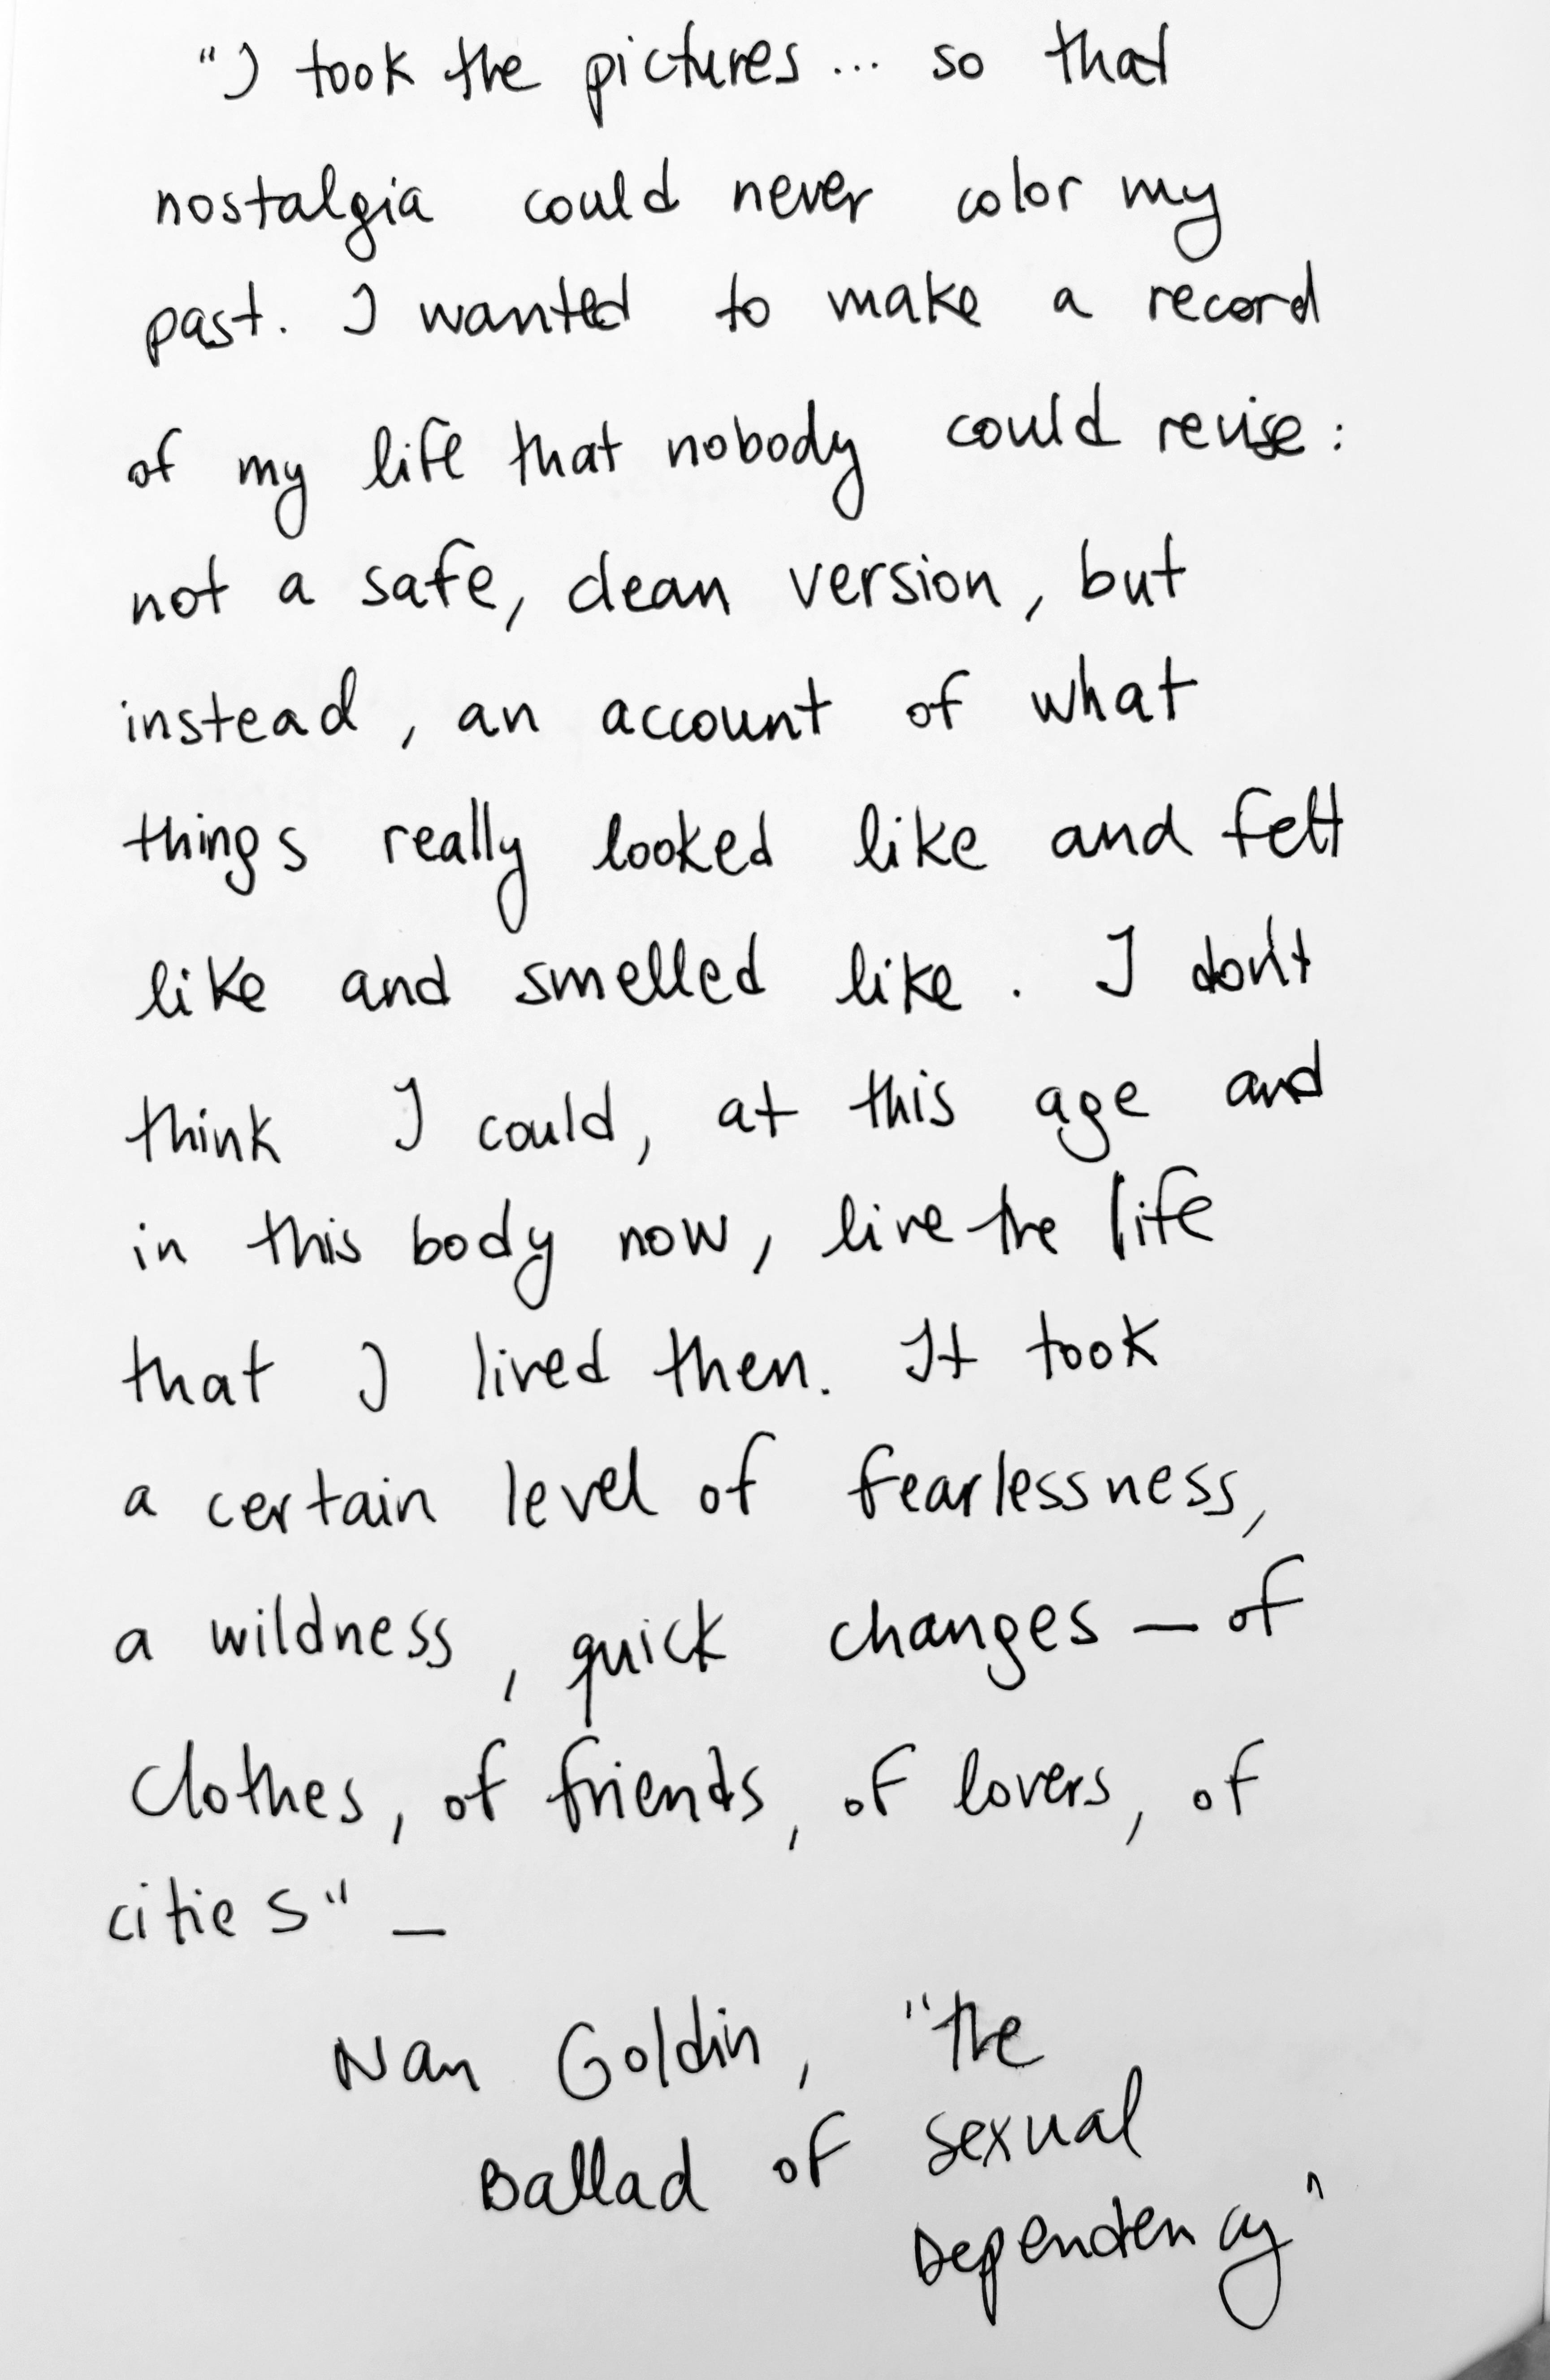 "I took the pictures... so that
nostalgia could never color my
past. I wanted to make a record
of my life that nobody could revise:
not a safe, clean version, but
instead, an account of what
things really looked like and felt
like and smelled like. I don't
think I could, at this age and
in this body now, live the life
that I lived then. It took
a certain level of fearlessness,
a wildness, quick changes – of
clothes, of friends, of lovers, of
cities" –
Nan Goldin, "the
Ballad of sexual
Dependency"